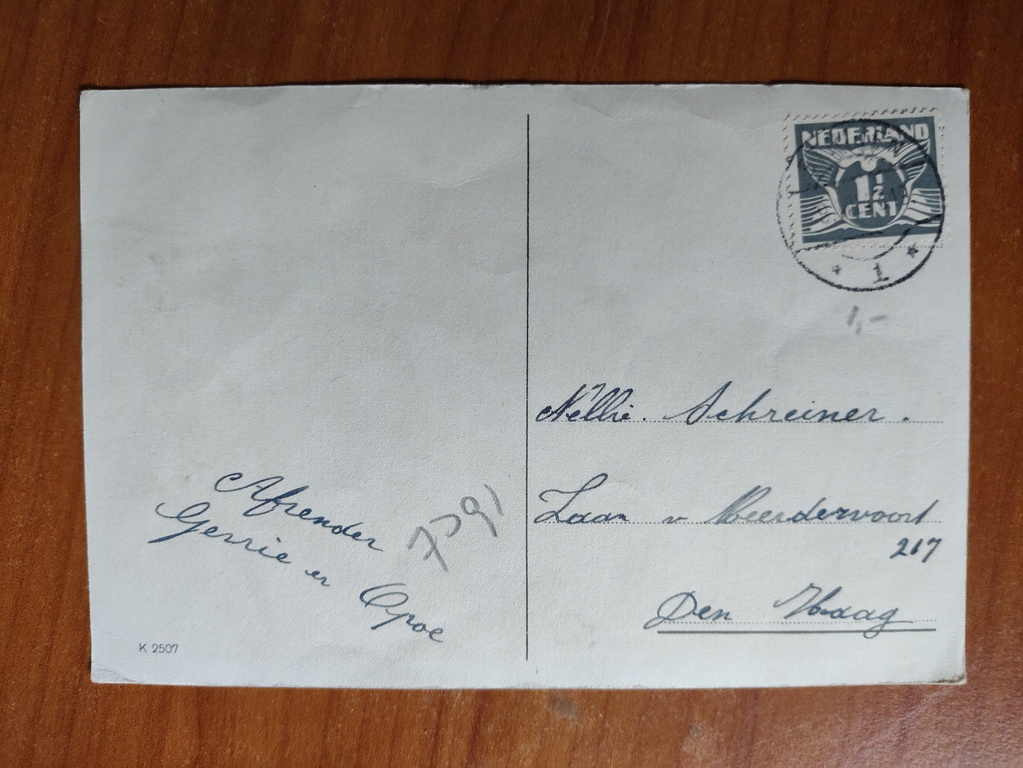 NEDERLAND
1½
CENT
1
1,-
Nellie. Schreiner.
Laan v Meerdervoort
217
Den Haag
Afzender
Gerrie en Opoe
K 2507